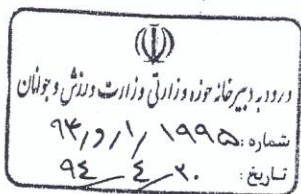 ورود به دبیرخانه حوزه وزارتی وزارت ورزش و جوانان
شماره: ۱۹۹۵/۱/و/۹۴
تاریخ: ۹۴/۴/۲۰